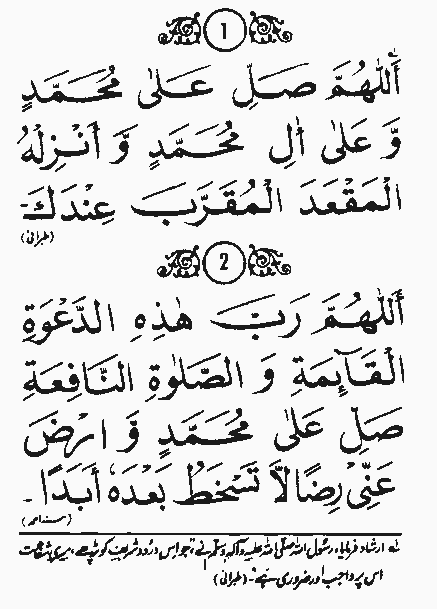 1
اَللّٰهُمَّ صَلِّ عَلٰی مُحَمَّدٍ
وَّ عَلٰی اٰلِ مُحَمَّدٍ وَّ اَنْزِلْهُ
الْمَقْعَدَ الْمُقَرَّبَ عِنْدَكَ۔
(طبرانی)
2
اَللّٰهُمَّ رَبَّ هٰذِهِ الدَّعْوَةِ
الْقَآئِمَةِ وَ الصَّلٰوةِ النَّافِعَةِ
صَلِّ عَلٰی مُحَمَّدٍ وَّ ارْضَ
عَنِّیْ رِضًا لَّا تَسْخَطُ بَعْدَهٗ اَبَدًا۔
(مسند احمد)
لہ ارشاد فرمایا، رسول اللہ صلی اللہ علیہ وآلہ وسلم نے، جو اس درود شریف کو پڑھے، میری شفاعت
اس پر واجب اور ضروری ہے۔ (طبرانی)